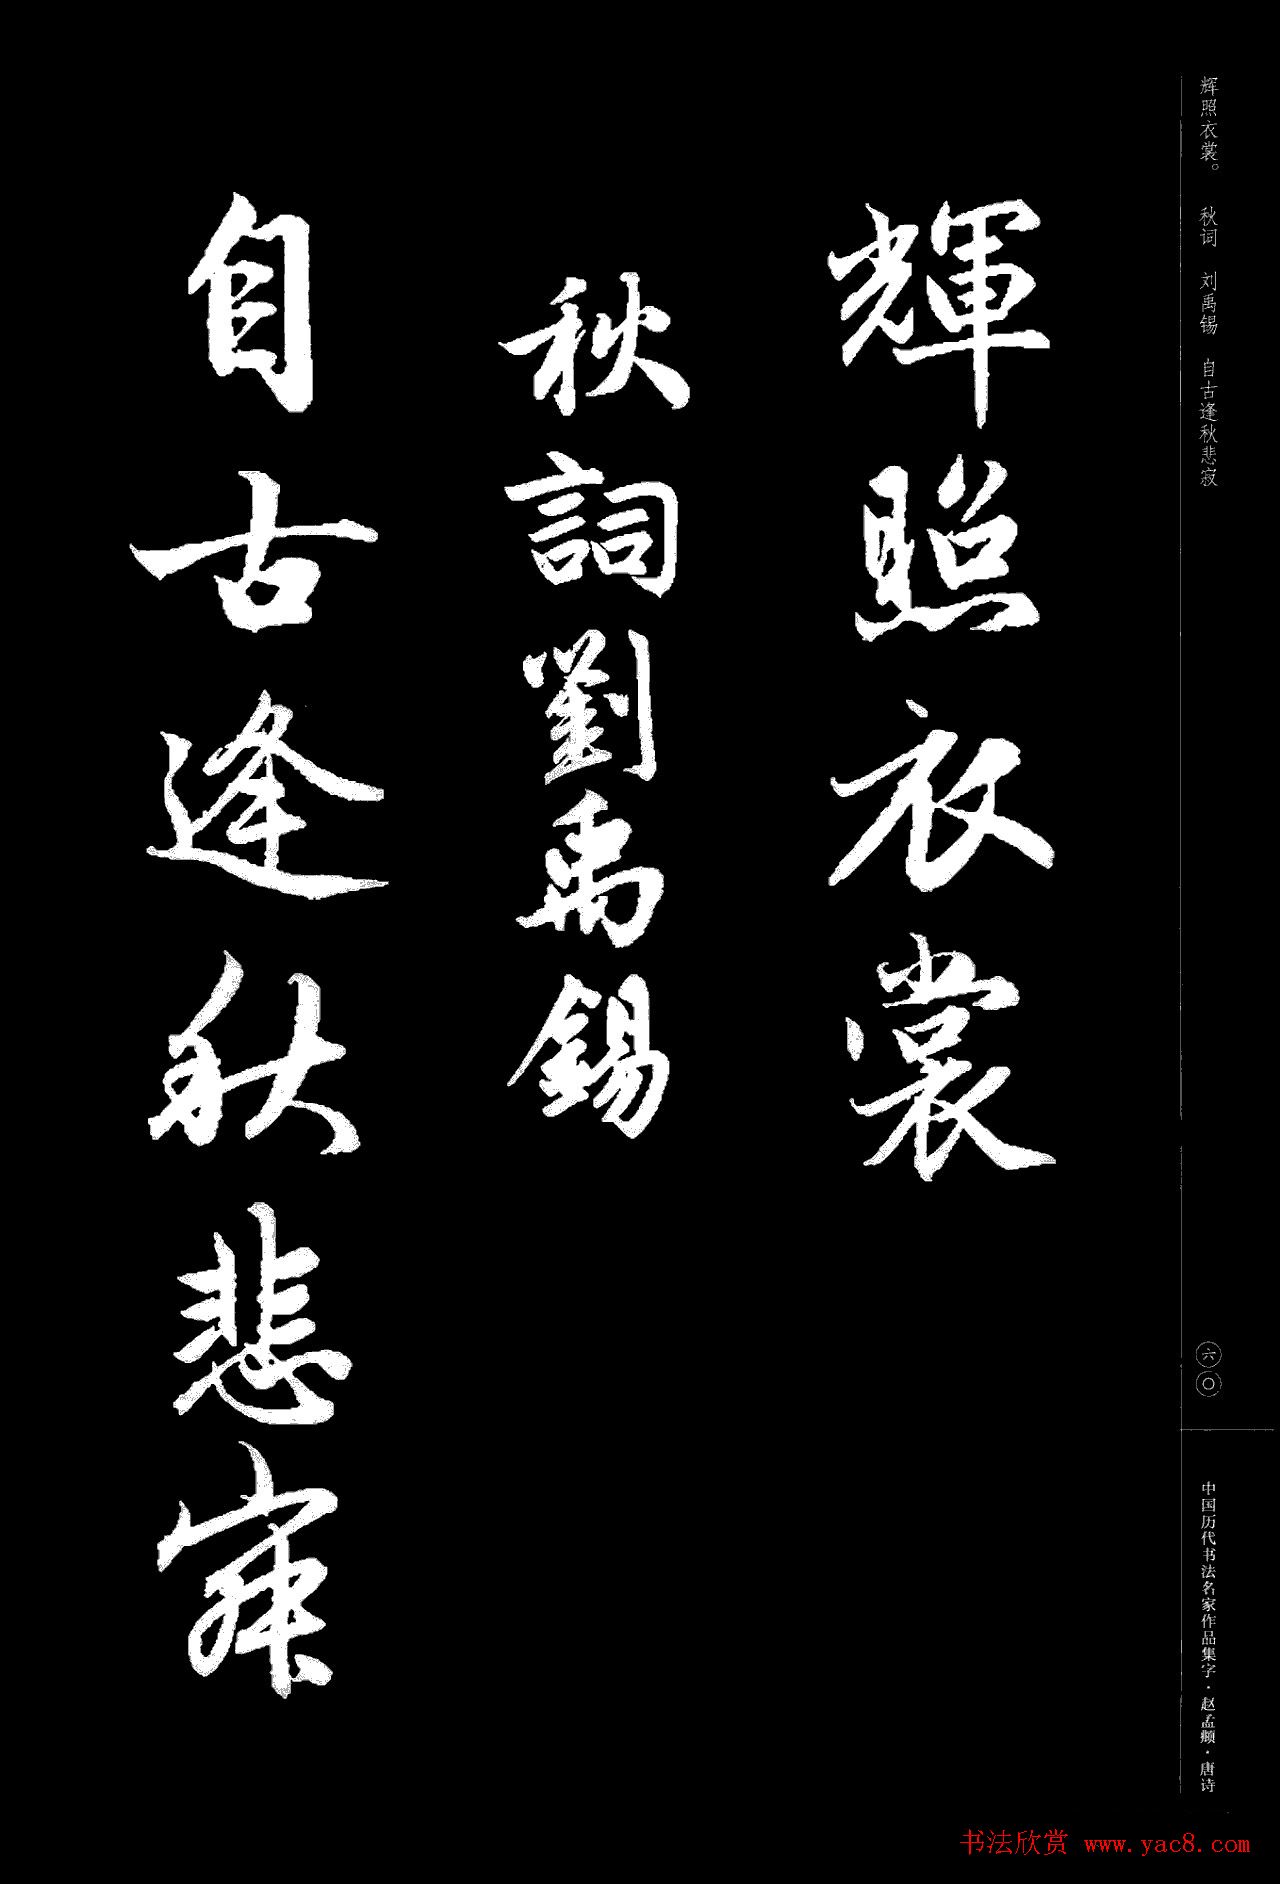 輝照衣裳
秋詞劉禹錫
自古逢秋悲寂
辉照衣裳。 秋词 刘禹锡 自古逢秋悲寂
六〇
中国历代书法名家作品集字·赵孟頫·唐诗
书法欣赏 www.yac8.com